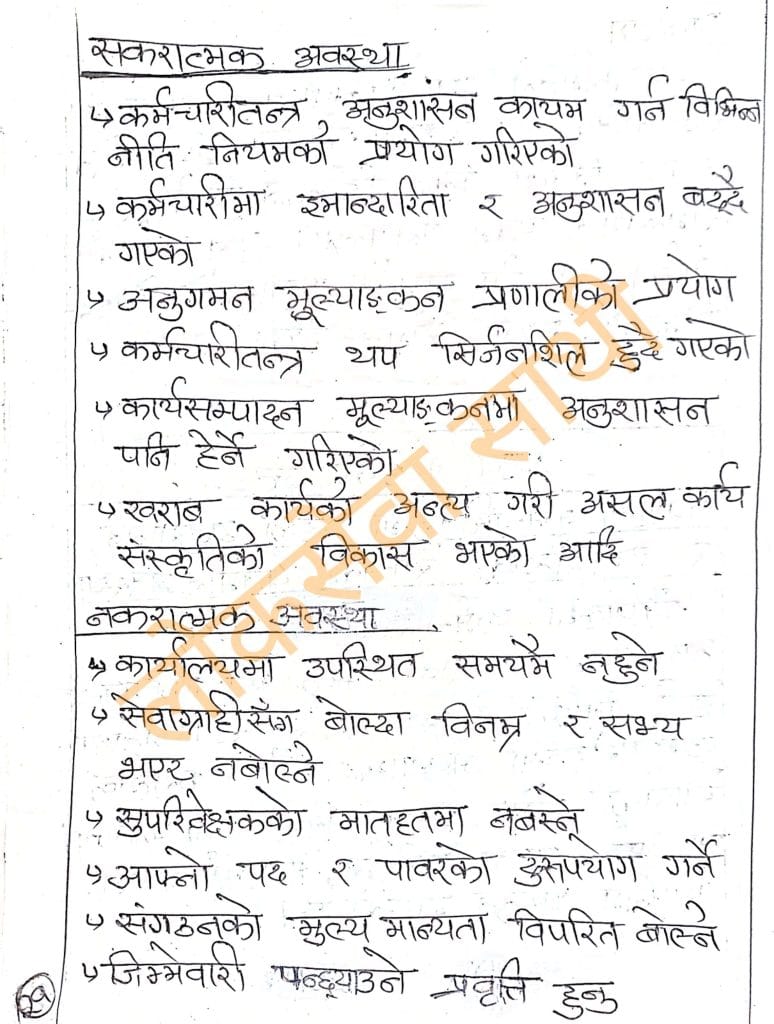 सकरात्मक अवस्था
↳ कर्मचारीतन्त्र अनुशासन कायम गर्न विभिन्न
नीति नियमको प्रयोग गरिएको
↳ कर्मचारीमा इमान्दारिता र अनुशासन बढ्दै
गएको
↳ अनुगमन मूल्याङ्कन प्रणालीको प्रयोग
↳ कर्मचारीतन्त्र थप सिर्जनशिल हुदै गएको
↳ कार्यसम्पादन मूल्याङ्कनमा अनुशासन
पनि हेर्ने गरिएको
↳ खराब कार्यको अन्त्य गरी असल कार्य
संस्कृतिको विकास भएको आदि
नकरात्मक अवस्था
↳ कार्यालयमा उपस्थित समयमै नहुने
↳ सेवाग्राहीसँग बोल्दा विनम्र र सभ्य
भएर नबोल्ने
↳ सुपरिवेक्षकको मातहतमा नबस्ने
↳ आफ्नो पद र पावरको दुरुपयोग गर्ने
↳ संगठनको मुल्य मान्यता विपरित बोल्ने
↳ जिम्मेवारी पन्छ्याउने प्रवृत्ति हुनु
लोकसेवा साथी